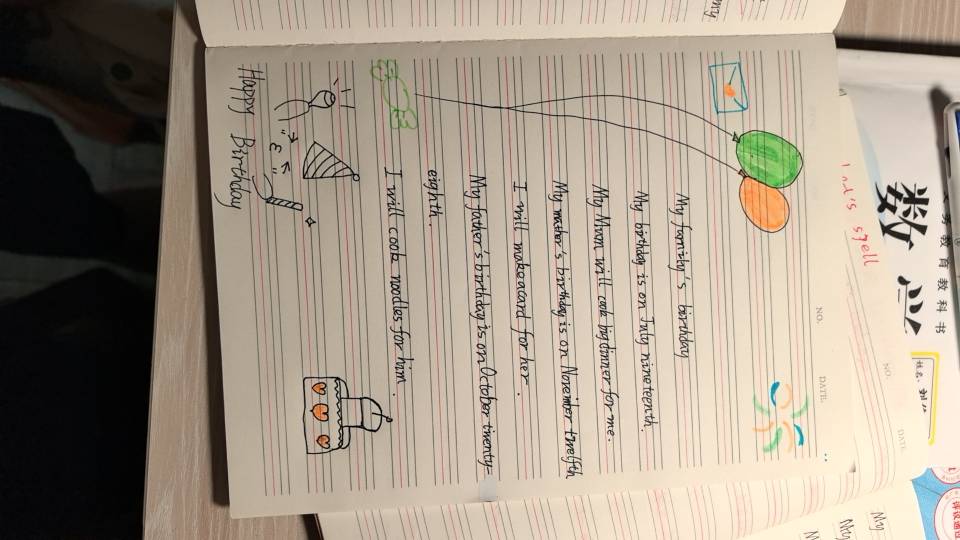 My family's birthday
My birthday is on July nineteenth.
My Mum will cook big dinner for me.
My mater's birthday is on November twelfth
I will make a card for her.
My father's birthday is on October twenty=
eighth.
I will cook noodles for him.
Happy Birthday
NO.
DATE
let's spell
NO.
DATE
义务教育教科书
数学
姓名:
My
My
My